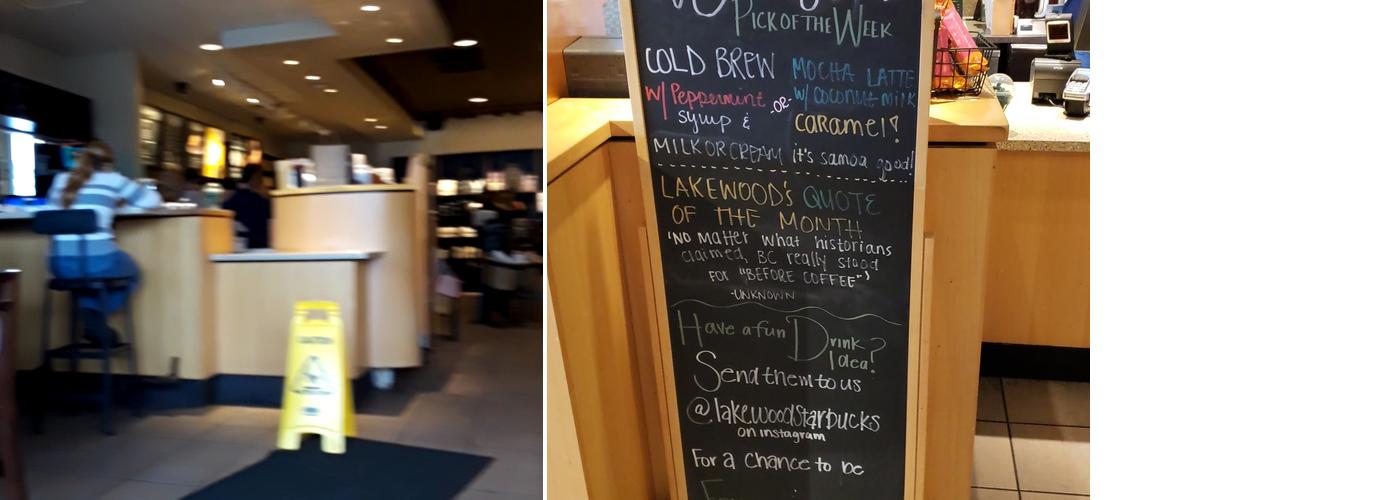 CAUTION
PICK OF THE WEEK
COLD BREW
w/ Peppermint
syrup &
MILK OR CREAM
-OR-
MOCHA LATTE
w/ COCONUT MILK
caramel!
it's samoa good!
LAKEWOOD'S QUOTE
OF THE MONTH
"NO Matter what historians
claimed, BC really stood
FOR "BEFORE COFFEE""
-UNKNOWN
Have a fun Drink
Idea?
Send them to us
@lakewoodstarbucks
on instagram
For a chance to be